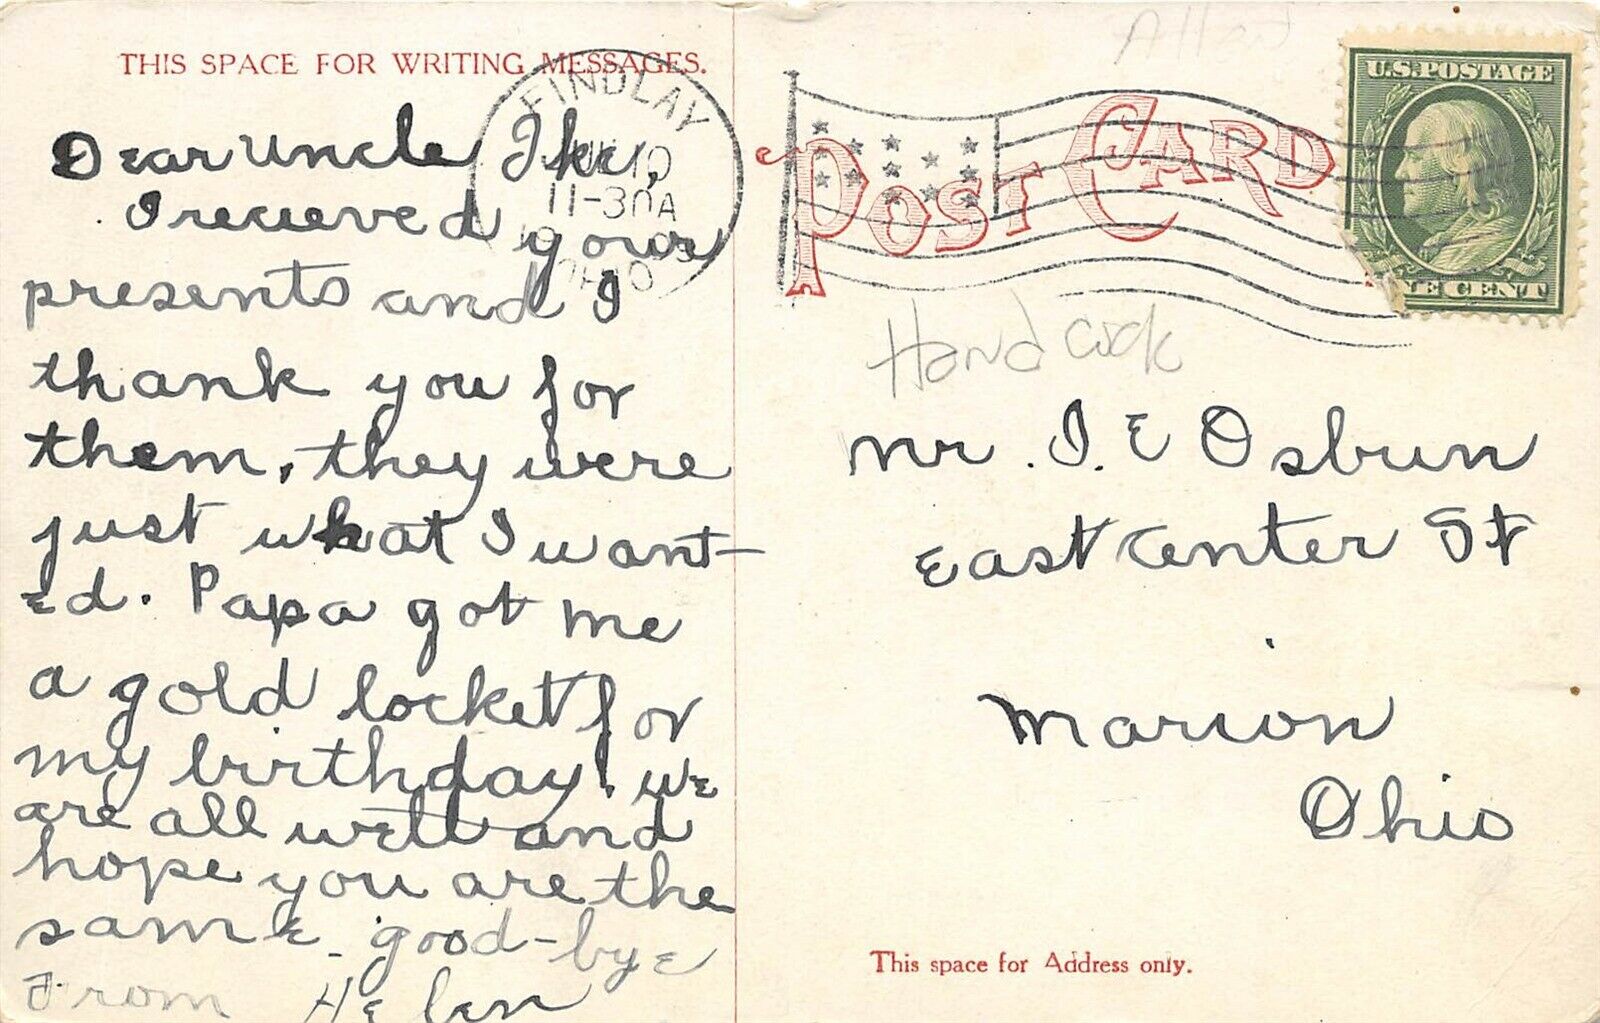 THIS SPACE FOR WRITING MESSAGES.
Dear Uncle Ike,
I recieved your
presents and I
thank you for
them. they were
just what I want-
ed. Papa got me
a gold locket for
my birthday. we
are all well and
hope you are the
same. good-bye
From Helen
FINDLAY
10
11-30A
OHIO
POST CARD
U.S. POSTAGE
NE CENT
Handcock
Mr. I. E Osbun
East Center St
Marion
Ohio
This space for Address only.